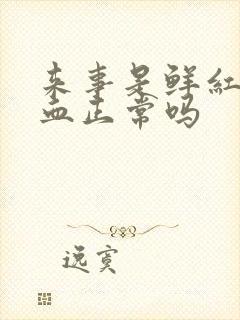 来事是鲜红
血正常吗
逸寞